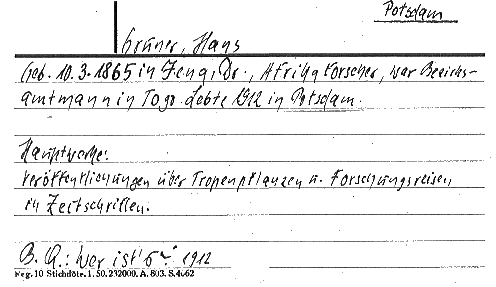 Potsdam
Gruner, Hans
Geb. 10.3.1865 in Jena, Dr., Afrikaforscher, war Bezirks-
amtmann in Togo. Lebte 1912 in Potsdam.
Hauptwerke:
Veröffentlichungen über Tropenpflanzen u. Forschungsreisen
in Zeitschriften.
B. Q.: Wer ist's 1912
Neg. 10 Stichdöte. 1. 50. 232000. A. 803. S. 4662